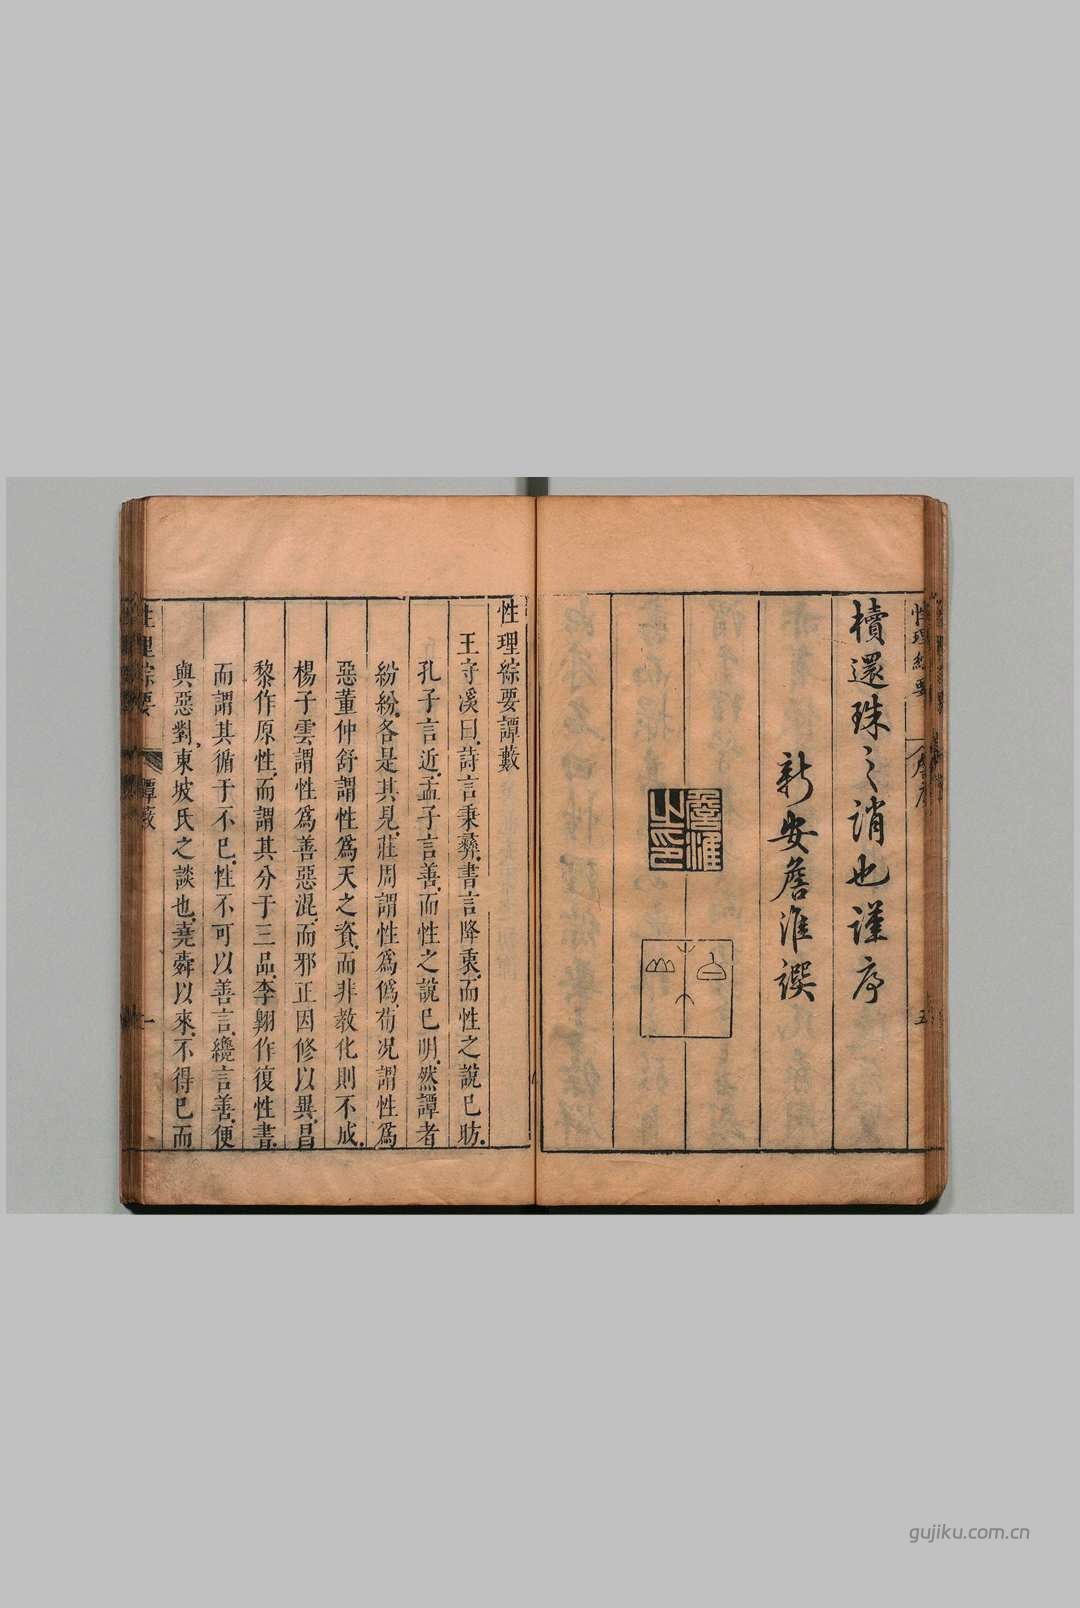 性理綜要
序
五
櫝還珠之誚也謹序
新安詹淮撰
性理綜要譚藪
王守溪曰詩言秉彝書言降衷而性之說已昉
孔子言近孟子言善而性之說已明然譚者
紛紛各是其見莊周謂性爲僞荀况謂性爲
惡董仲舒謂性爲天之資而非教化則不成
楊子雲謂性爲善惡混而邪正因修以異昌
黎作原性而謂其分于三品李翱作復性書
而謂其循于不已性不可以善言纔言善便
與惡對東坡氏之談也堯舜以來不得已而
性理綜要
譚藪
一
gujiku.com.cn